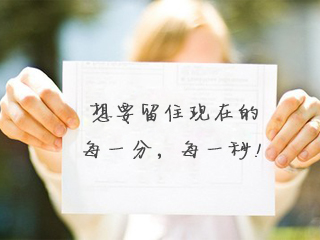 想要留住现在的
每一分，每一秒!